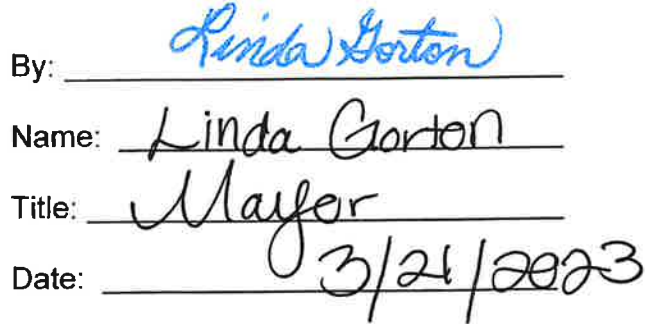 By: Linda Gorton
Name: Linda Gorton
Title: Mayor
Date: 3/21/2023